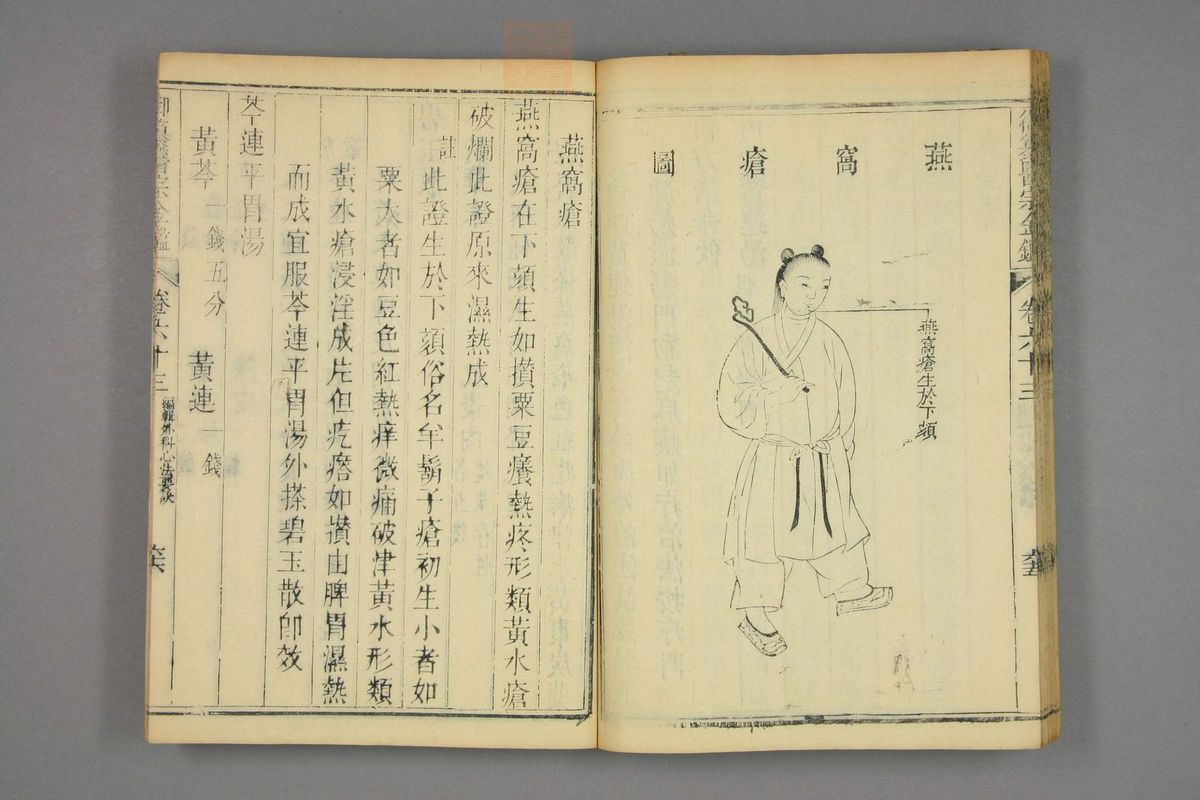 燕窩瘡圖
燕窩瘡生於下頦
卷六十三
燕窩瘡
燕窩瘡在下頦生如攢粟豆癢熱疼形類黃水瘡
破爛此證原來濕熱成
註此證生於下頦俗名羊鬍子瘡初生小者如
粟大者如豆色紅熱痒微痛破津黃水形類
黃水瘡浸淫成片但疙瘩如攢由脾胃濕熱
而成宜服芩連平胃湯外搽碧玉散卽效
芩連平胃湯
黃芩一錢五分 黃連一錢
卷六十三 編輯外科心法要訣